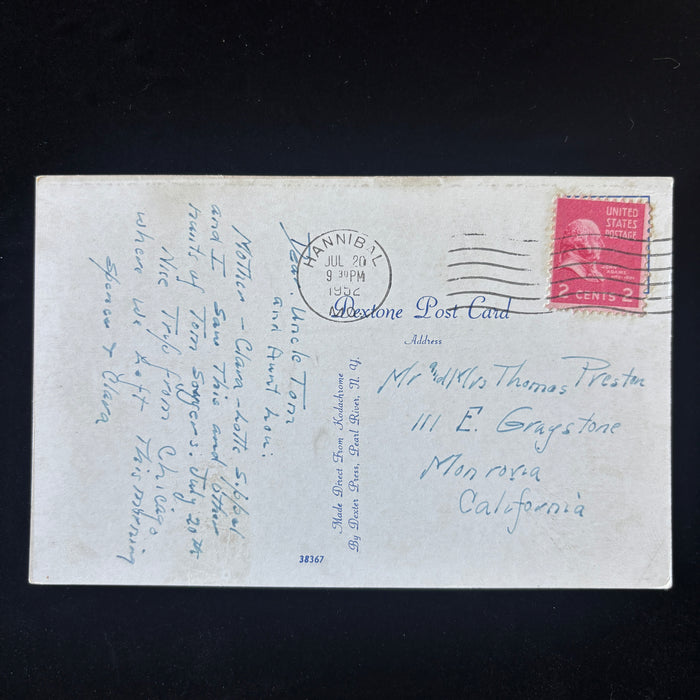 HANNIBAL
JUL 20
9 30 PM
1952
MO.
UNITED
STATES
POSTAGE
JOHN
ADAMS
2 CENTS 2
Dextone Post Card
Address
Mr and Mrs Thomas Preston
111 E. Graystone
Monrovia
California
Dear Uncle Tom
and Aunt Lou:
Mother - Clara - Lotte
and I saw this and other
haunts of Tom Sawyers. July 20th
Nice Trip from Chicago
where we left This morning
Spencer & Clara
Made Direct From Kodachrome
By Dexter Press, Pearl River, N. Y.
38367